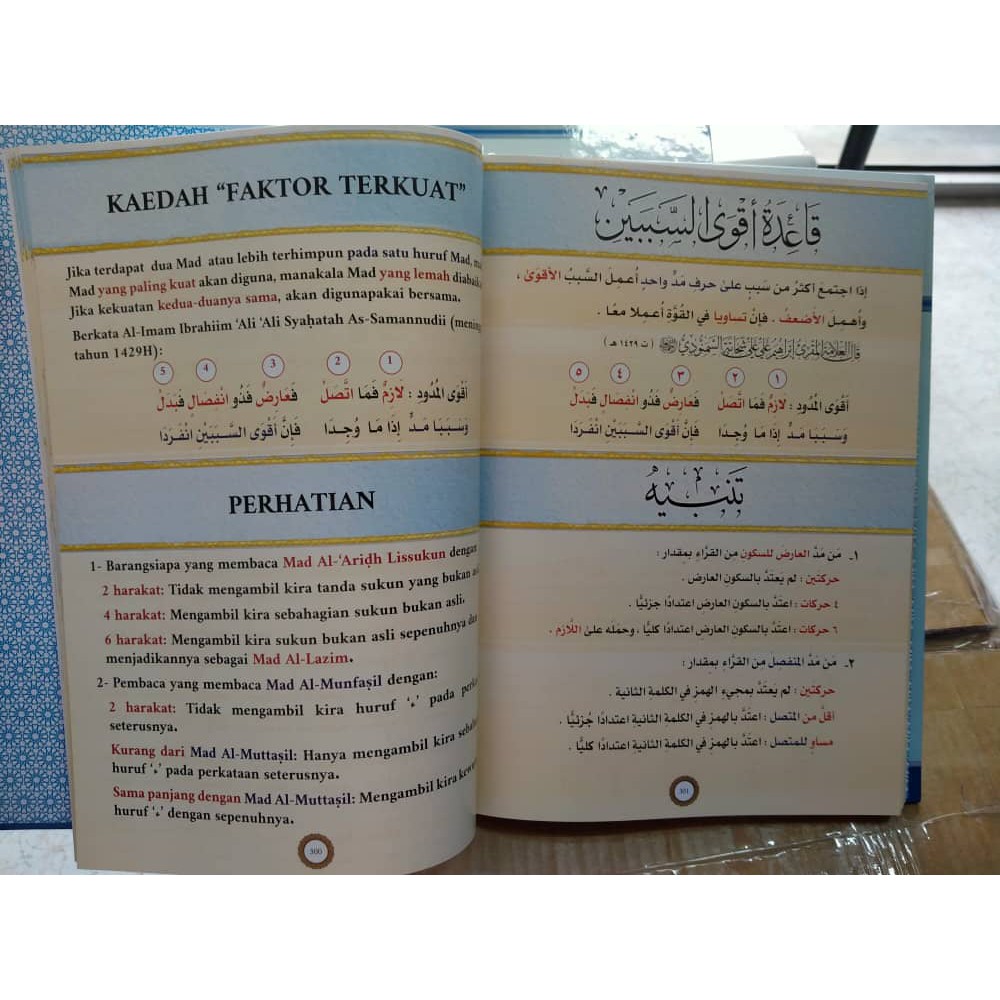 KAEDAH “FAKTOR TERKUAT”
Jika terdapat dua Mad atau lebih terhimpun pada satu huruf Mad,
Mad yang paling kuat akan diguna, manakala Mad yang lemah
Jika kekuatan kedua-duanya sama, akan digunapakai bersama.
Berkata Al-Imam Ibrahiim ‘Ali ‘Ali Syaḥatah As-Samannudii
tahun 1429H):
1 2 3 4 5
أَقْوَى الْمُدُودِ : لَازِمٌ فَمَا اتَّصَلْ فَعَارِضٌ فَذُو انْفِصَالٍ فَبَدَلْ
وَسَبَبَا مَدٍّ إِذَا مَا وُجِدَا فَإِنَّ أَقْوَى السَّبَبَيْنِ انْفَرَدَا
PERHATIAN
1- Barangsiapa yang membaca Mad Al-‘Ariḍh Lissukun dengan
2 harakat: Tidak mengambil kira tanda sukun yang bukan
4 harakat: Mengambil kira sebahagian sukun bukan asli.
6 harakat: Mengambil kira sukun bukan asli sepenuhnya
menjadikannya sebagai Mad Al-Lazim.
2- Pembaca yang membaca Mad Al-Munfaṣil dengan:
2 harakat: Tidak mengambil kira huruf ‘ء’ pada
seterusnya.
Kurang dari Mad Al-Muttaṣil: Hanya mengambil kira
huruf ‘ء’ pada perkataan seterusnya.
Sama panjang dengan Mad Al-Muttaṣil: Mengambil kira
huruf ‘ء’ dengan sepenuhnya.
300
قَاعِدَةُ أَقْوَى السَّبَبَيْنِ
إذا اجتمعَ أكثرُ من سَببٍ علىٰ حرفِ مَدٍّ واحدٍ أُعمِلَ السَّببُ الأقوىٰ ،
وأُهمِلَ الأضعفُ . فإنْ تساويا في القُوَّةِ أُعمِلا معًا .
قال العلامة المقرئ إبراهيم علي علي شحاتة السمنودي (ت ١٤٢٩ هـ)
١ ٢ ٣ ٤ ٥
أَقْوَى الْمُدُودِ : لَازِمٌ فَمَا اتَّصَلْ فَعَارِضٌ فَذُو انْفِصَالٍ فَبَدَلْ
وَسَبَبَا مَدٍّ إِذَا مَا وُجِدَا فَإِنَّ أَقْوَى السَّبَبَيْنِ انْفَرَدَا
تَنْبِيهٌ
١ـ مَن مَدَّ العارض للسكون من القرَّاء بمقدار :
حركتين : لم يعتدَّ بالسكون العارض .
٤ حركات : اعتدَّ بالسكون العارض اعتدادًا جزئيًّا .
٦ حركات : اعتدَّ بالسكون العارض اعتدادًا كليًّا ، وحملَه علىٰ اللَّازم .
٢ـ مَن مَدَّ المنفصل من القرَّاء بمقدار :
حركتين : لم يعتدَّ بمجيء الهمز في الكلمة الثانية .
أقلَّ من المتصل : اعتَدَّ بالهمز في الكلمة الثانية اعتدادًا جُزئيًّا .
مساوٍ للمتصل : اعتدَّ بالهمز في الكلمة الثانية اعتدادًا كليًّا .
301